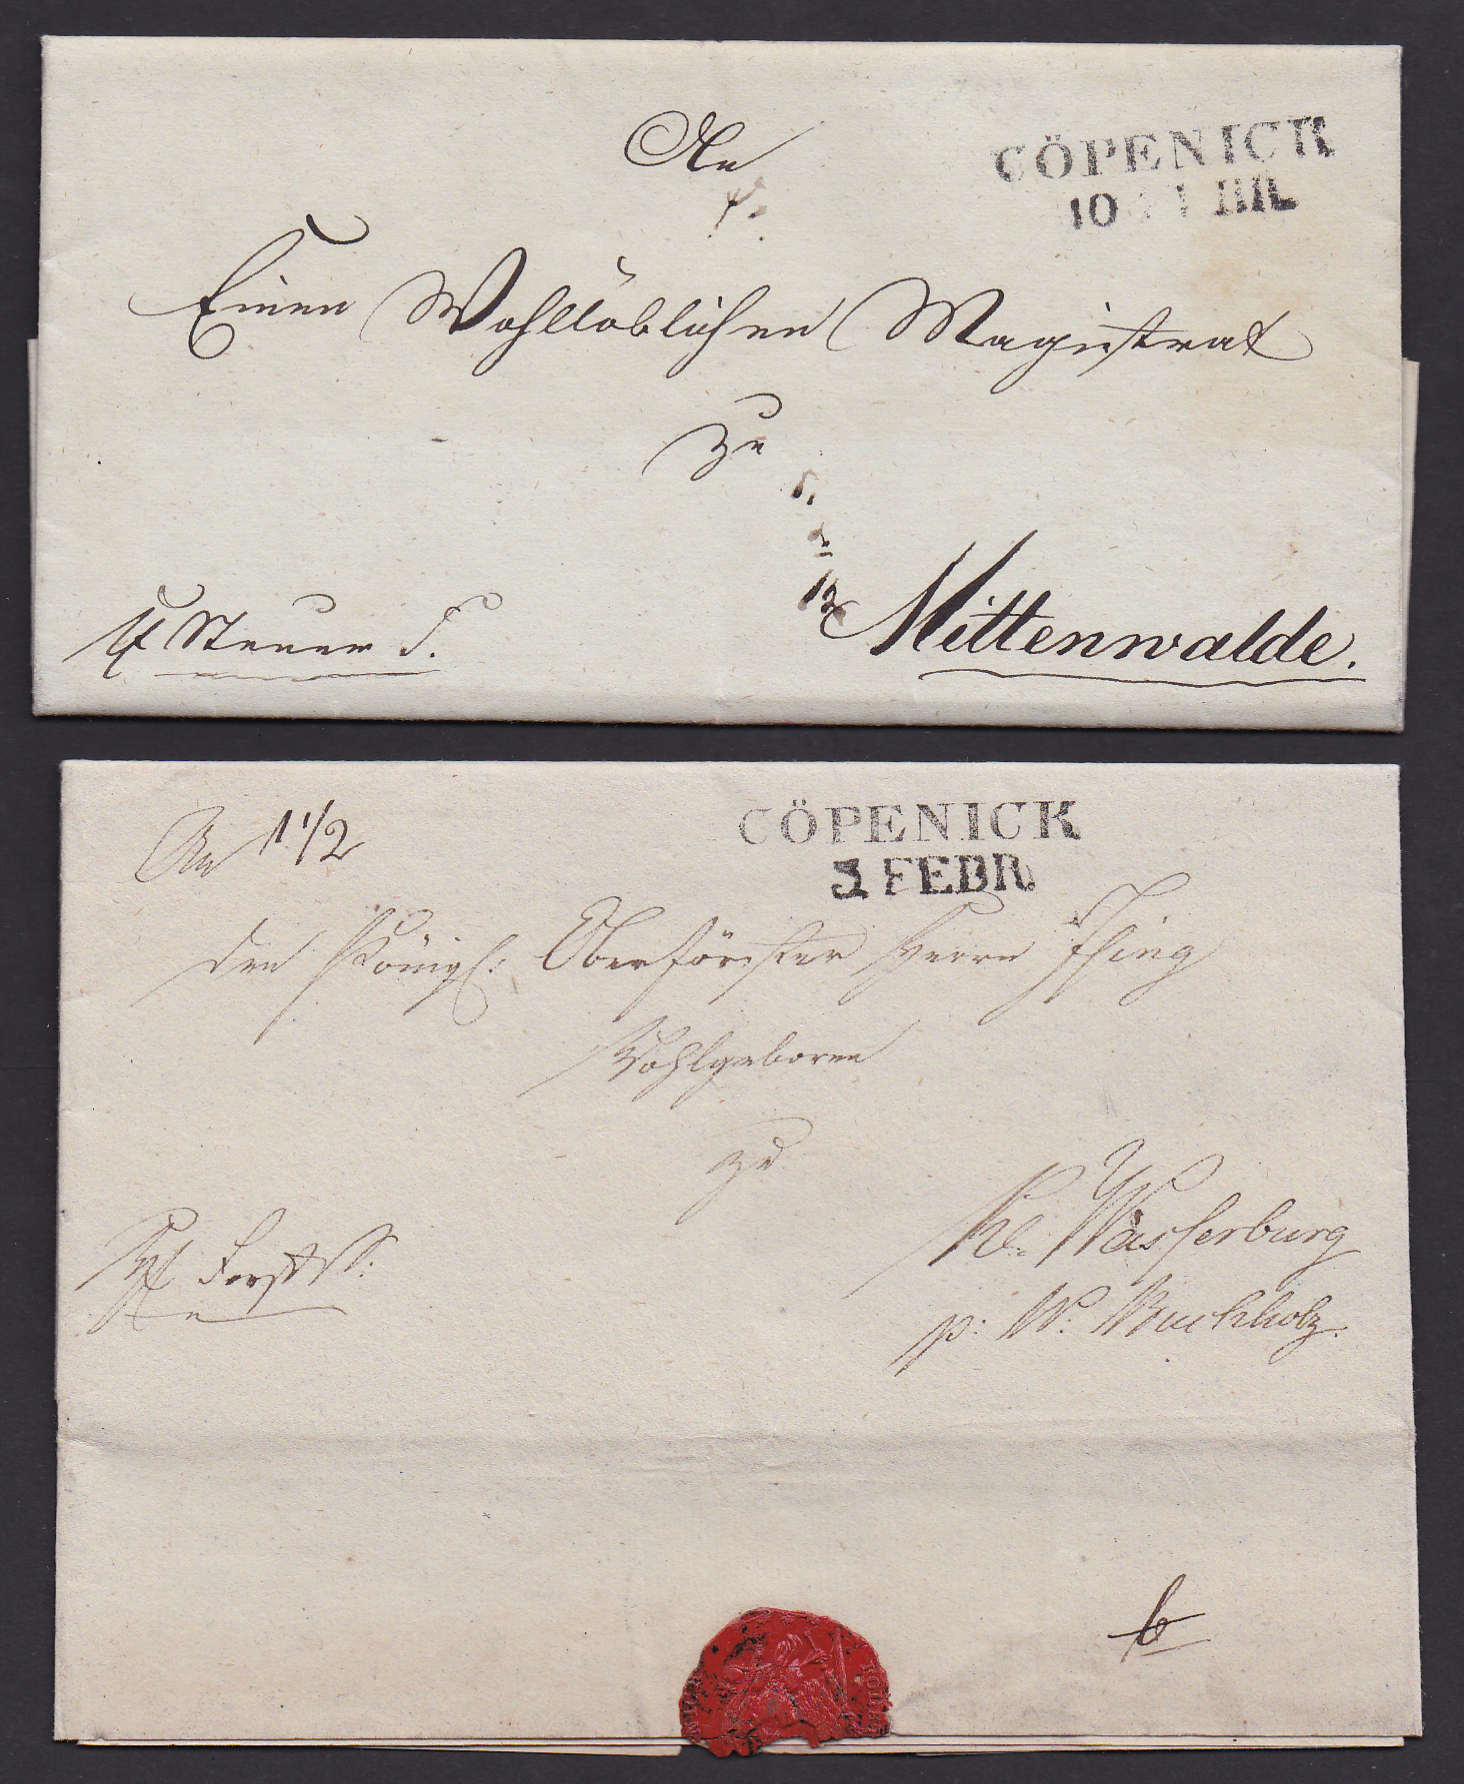 An
CÖPENICK
10
Einen Wohllöblichen Magistrat
zu
12
Steuer S. Mittenwalde.
An 1 1/2
CÖPENICK
3 FEBR
den Königl: Oberförster Herrn
Wohlgeboren
zu
Kl. Wasserburg
Forst S:
p: W: Buchholz.
6